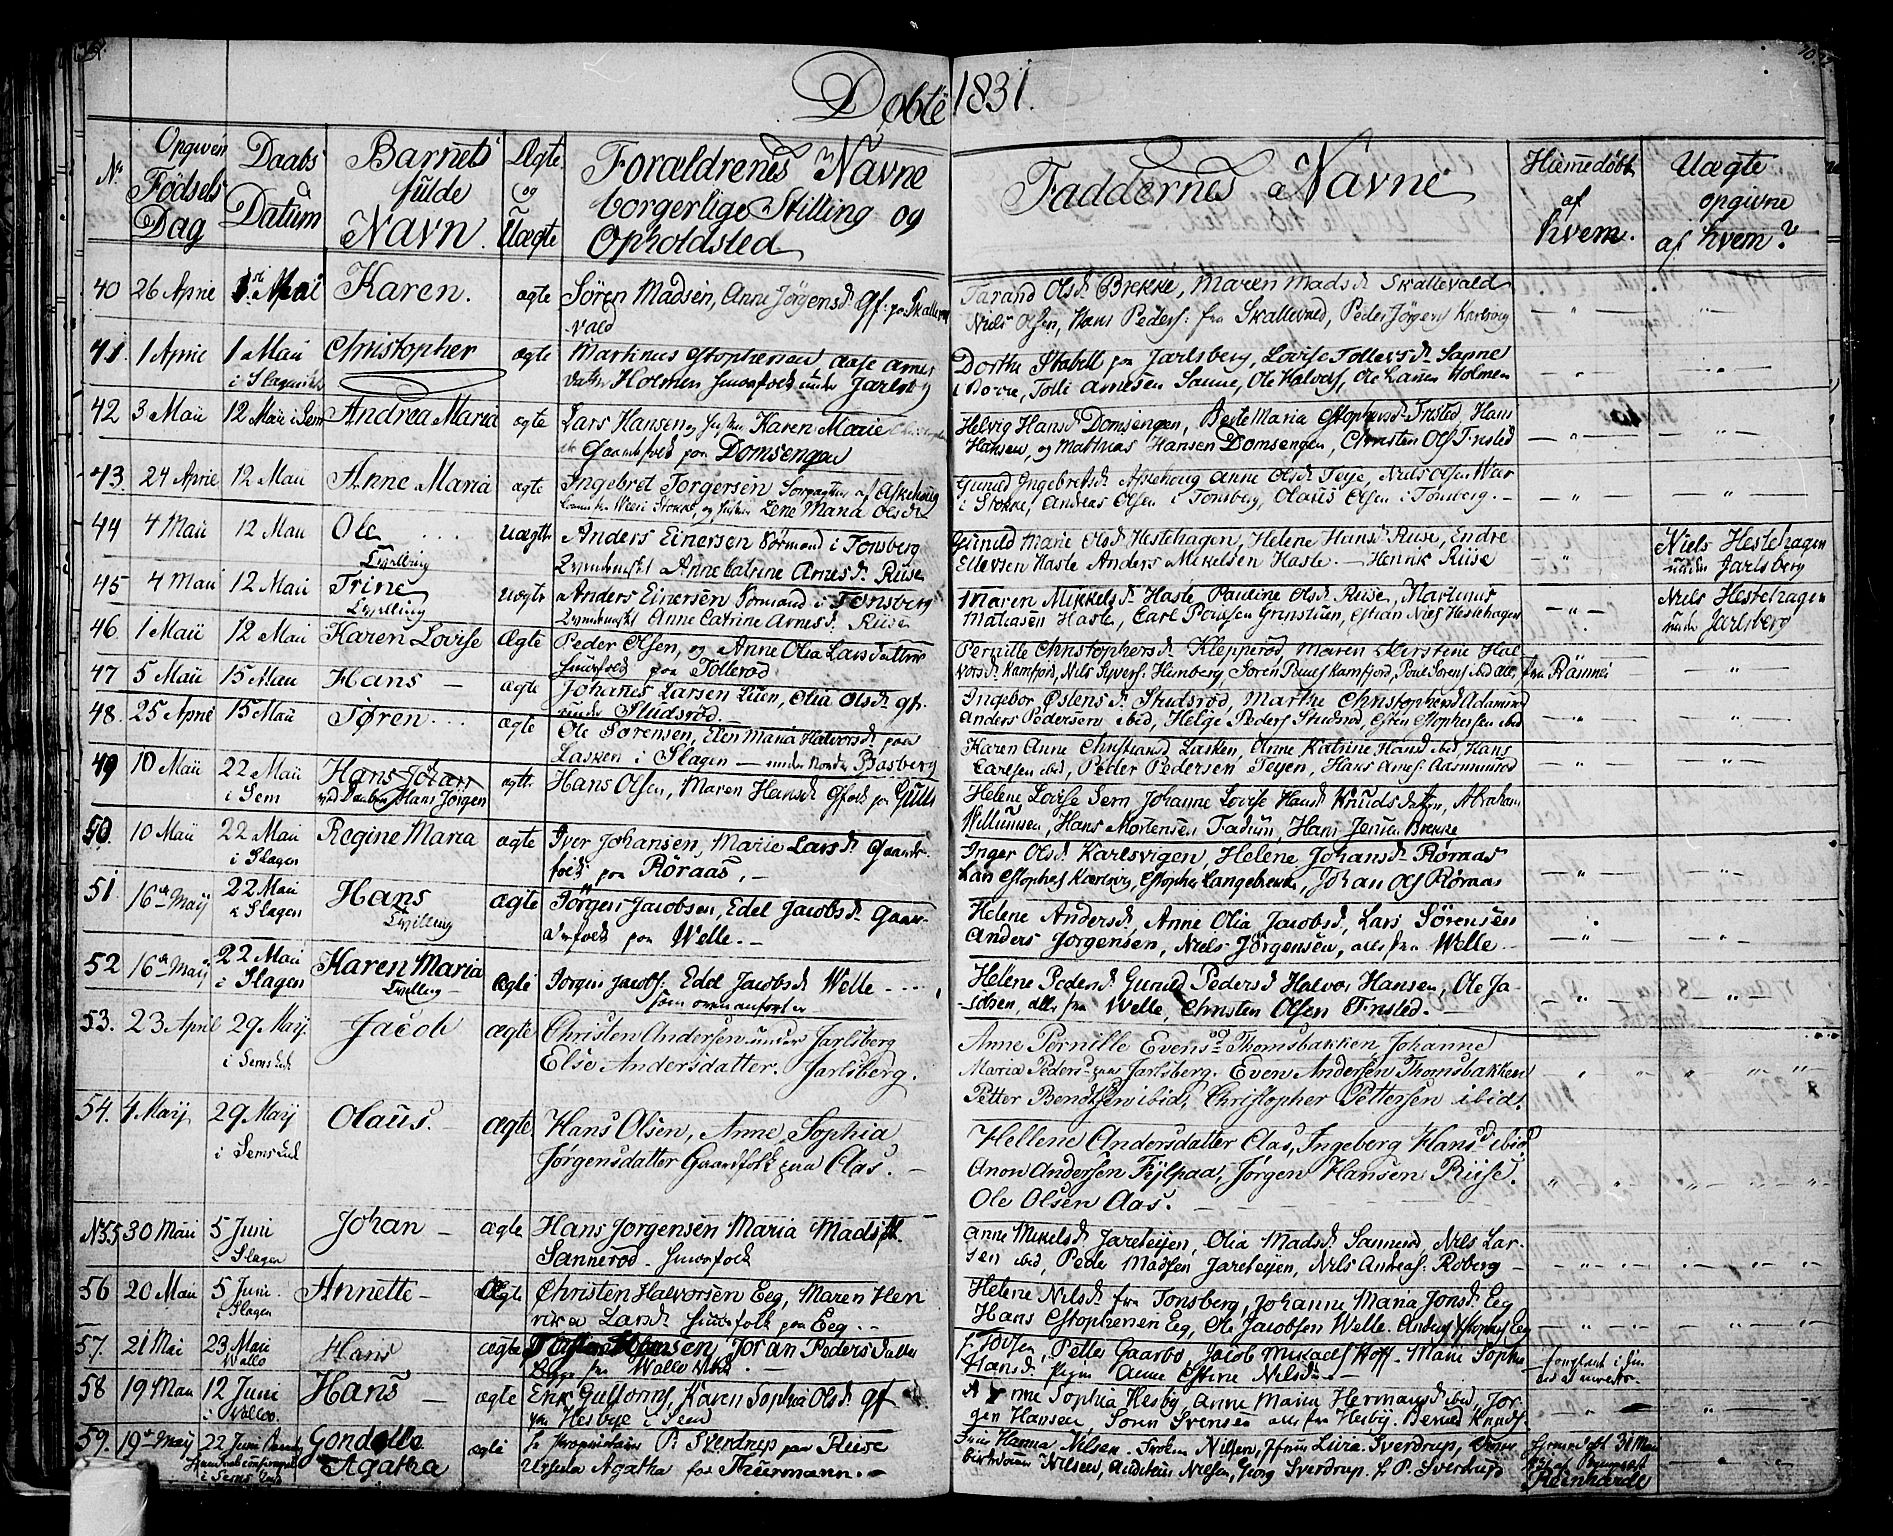 Døbte 1831.
No Opgiven Fødsels Dag Daabs Datum Barnets fulde Navn. Ægte og Uægte Forældrenes Navne borgerlige Stilling og Opholdsted Faddernes Navne Hiemedøbt af hvem. Uægte opgivne af hvem?
40 26 April 1ste Mai Karen. ægte Søren Madsen, Anne Jørgensd. Gf. paa Skalle
vald
Tarand Olsd. Brekke, Maren Madsd. Skallevald
Niels Olsen, Hans Peders: fra Skallevald, Peder Jørgens Karlsvig
41. 1 April 1 Maii Christopher ægte Martinus Estophersen Aase Arnes
i Slagen datter Holmen Huusfolk under Jarlsberg
Dorthe Stabell paa Jarlsberg, Lovise Tollersd. Sapne
i Borre, Tolli Arnesen Sanne, Ole Halvors, Ole Larsen Holmen
42 3 Maii 12 Maii i Sem Andrea Maria ægte Lars Hansen og Karen Marie
Gaardfolk paa Domsengen
Helvig Hansd. Domsengen, Berte Maria Estophersd. Frosted, Hans
Hansen, og Mathias Hansen Domsengen, Christen Ols Frosted
43. 24 April 12 Maii Anne Maria ægte Ingebret Torgersen af Askehoug
Stokke, og Lene Maria Olsdr
Gunild Ingebretsd. Askehoug Anne Olsd. Teye, Niels Olsen War
i Stokke, Andreas Olsen i Tonsberg, Olaus Olsen i Tonsberg. -
44 4 Maii 12 Maii Ole uægte Anders Einersen Sørmand i Tonsberg
Tvilling Anne Catrine Arnesd. Ruse
Gunild Marie Olsd. Hestehagen, Helene Hansd. Ruse, Endre
Ellevsen Haste Anders Mikelsen Haste. - Henrik Riise
Niels Hestehagen
under Jarlsberg
45 4 Maii 12 Maii Trine uægte Anders Einersen Sørmand i Tonsberg
Tvilling Anne Catrine Arnesd. Ruse
Maren Mikkelsd. Haste, Pauline Olsd. Riise, Martinus
Matiasen Haste, Carl Poulsen Grinstuen, Niels Hestehagen
Niels Hestehagen
under Jarlsberg
46. 1 Maii 12 Maii Karen Lovise Ægte Peder Olsen, og Anne Olia Larsdatter
Huusfolk paa Tollerød
Pernille Christophersd. Klepperød, Maren Kirstine Hal
vorsd. Kamfjord, Nils Syvers. Himberg, Søren Pouls Kamfjord, Poul Sørens ibid alle, fra Ramnes
47 5 Maii 15 Maii Hans - ægte Johanes Larsen Lilen, Olia Olsd. gf.
under Studsrød
Ingebor Østensd. Studsrød, Marthe Christophersd. Adamrød
Anders Pedersen ibid, Helge Peders Studsrød, Esten Estophersen ibid
48. 25 April 15 Maii Søren ... ægte Ole Sørensen, Elen Maria Halvorsd. paa
Lasken i Slagen - under Nordre Basberg
Karen Anne Christiansd. Lasken, Anne Katrine Hansd. ibid Hans
Carlsen ibid, Peder Pedersen Teyen, Hans Arnes Aasmunrød
49 10 Maii 22 Maii Hans Johan ægte Hans Olsen, Maren Hansd. Gfolk paa Gulli
i Sem ved Daaben Hans Jørgen
Helene Lovise Sem, Johanne Lovise Hansd. Knudsdatter, Abraham
Willumsen, Hans Mortensen Tadum, Hans Jensen Brekke
50. 10 Maii 22 Maii Regine Maria ægte Iver Johansen, Marie Larsd. Gaard-
i Slagen folk paa Røraas. -
Inger Olsd. Karlsvigen, Helene Johansd. Røraas
Lars Estophers Karlsvig, Estopher Langebrekke, Johan Ols Røraas
51. 16de Maij 22 Maii Hans ægte Jørgen Jacobsen, Edel Jacobsd. Gaar-
i Slagen Tvilling dsfolk paa Welle. -
Helene Andersd. Anne Olia Jacobsd. Lars Sørensen
Anders Jørgensen, Niels Jørgensen, alle fra Welle. -
52 16de Maij 22 Maii Karen Maria Ægte Jørgen Jacobs. Edel Jacobsd. Welle ....
i Slagen Tvilling som ovenanført er
Helene Pedersd. Gunild Pedersd. Halvor Hansen, Ole Ja-
cobsen, alle fra Welle, Christen Olsen Frosted.
53. 23 April 29 Maij Jacob ægte Christen Andersen under Jarlsberg
i Sems Else Andersdatter. Jarlsberg.
Anne Pernille Evensd. Thomsbakken, Johanne
Maria Pedersd. paa Jarlsberg. Even Andersen Thomsbakken
Petter Bendtsen ibid, Christopher Pettersen ibid.
54. 4 Maij 29 Maij Olaus. ægte Hans Olsen, Anne Sophia
i Sems Jørgensdatter Gaardfolk paa Aas. -
Hellene Andersdatter Aas, Ingeborg Hansd. ibid
Anon Andersen Fejlpaa, Jørgen Hansen Riise.
Ole Olsen Aas.
No 55 30 Maii 5 Juni Johan - ægte Hans Jorgensen Maria Madsd.
i Slagen Sannerød. Huusfolk
Anne Mikelsd. Jareteyen, Olia Madsd. Sannerød, Nils Lar-
sen ibid, Peder Madsen Jareteyen, Nils Andreas: Roberg -
56 20 Maii 5 Juni Annette - Ægte Christen Halvorsen Eeg, Maren Hen
i Slagen rikea Larsd. Huusfolk paa Eeg. -
Helene Nilsd. fra Tonsberg, Johanne Maria Jonsd. Eeg
Hans Estophersen Eeg, Ole Jacobsen Welle. Anders Estophers Eeg
57. 21 Mai 23 Maii Hans ægte Hansen, Joran Pedersdatter
Wallo fra Wallo
Petter Gaarbo Jacob Mikaels Hoff. Marie Sophie
Hansd. Anne Estine Nilsd.
58 19 Maii 12 Juni Hans - ægte Erik Gulforms, Karen Sophia Olsd. gf
i Walløe. paa Hesbye i Sem
Anne Sophia Hesby, Anne Maria Hermansd. ibid, Jor-
gen Hansen, Søren Svensen alle fra Hesby. Bernt Knuds.
59. 19de Maij 22 Juni Gondelle Agatha ægte Hr Proprietair P. Sverdrup paa Riise
i Sems Ursula Agatha fød Thuermann. -
Fru Hanna Nilsen. Frøken Nilsen, Jfrue Livia Sverdrup,
Nilsen, Nilsen, Georg Sverdrup. Hr P. Sverdrup
Hjemmedøbt 31 Maii
af
Reinhardt